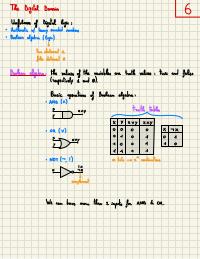 The Digital Domain
6
Usefulness of Digital logic:
• Arithmetic w/ binary encoded numbers
• Boolean algebra (logic)
true statement: 1
false statement: 0
Boolean algebra: the values of the variables are truth values: true and false
(respectively 1 and 0).
Basic operations of Boolean algebra:
• AND (∧)
truth tables
x
y
x∧y
x y x∧y x∨y
0 0 0 0
0 1 0 1
1 0 0 1
1 1 1 1
x ¬x
0 1
1 0
• OR (∨)
x
y
x∨y
• NOT (¬, !)
x
complement
We can have more than 2 inputs for AND & OR.